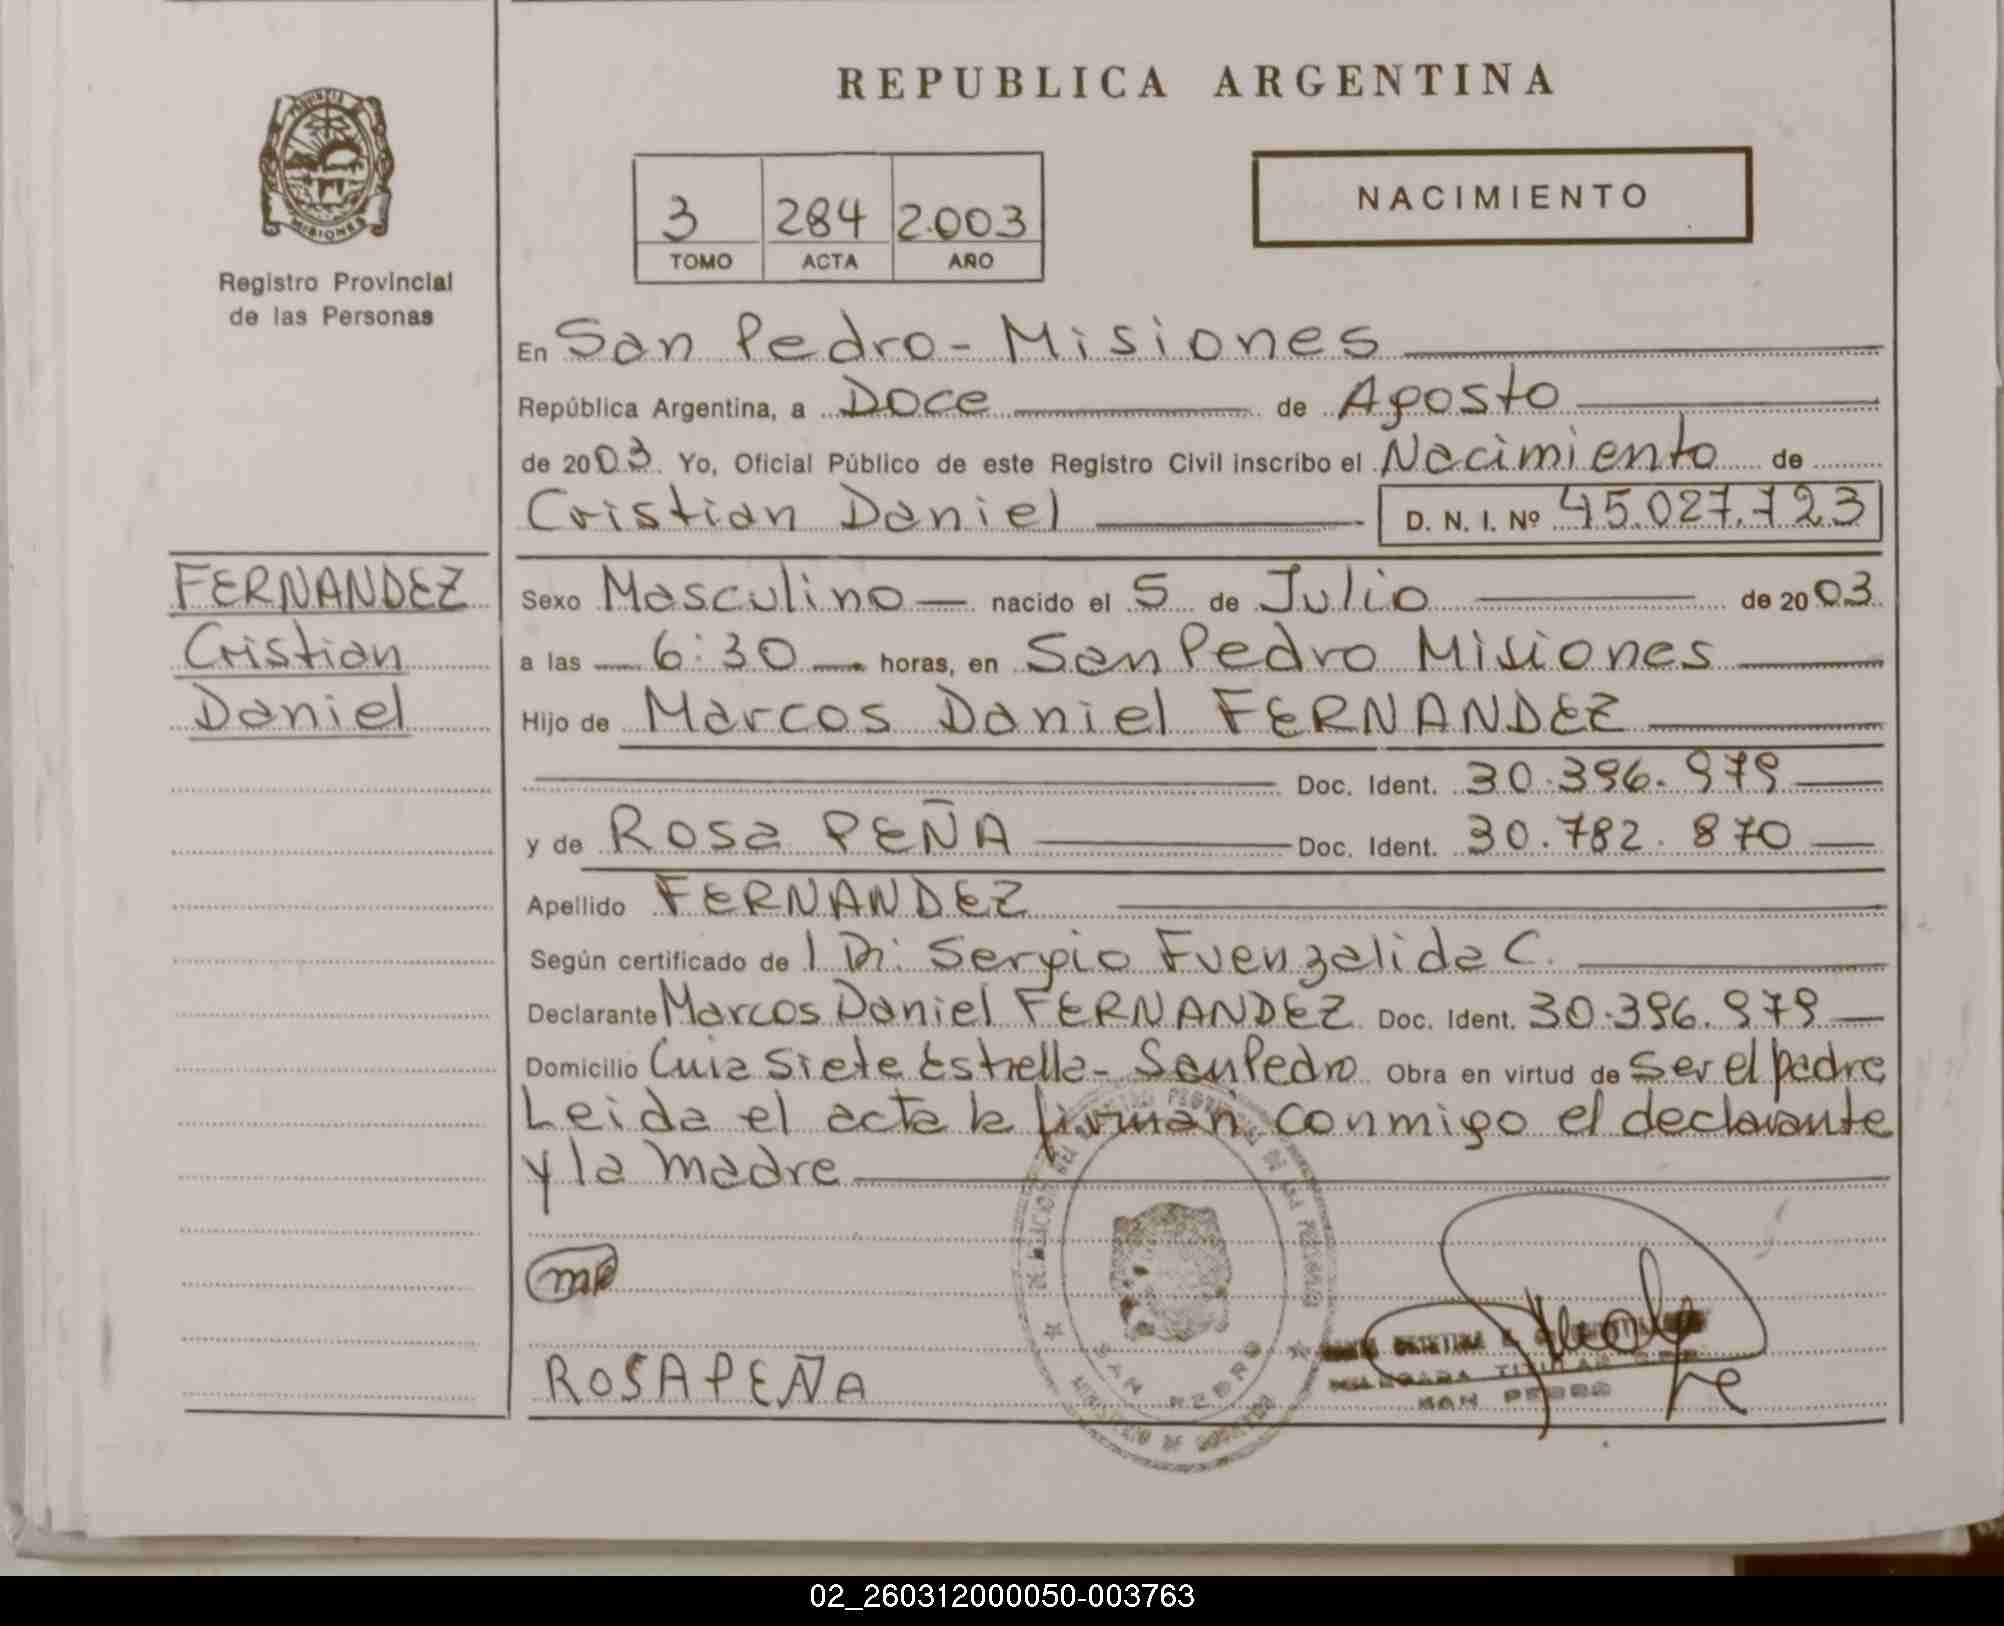 REPUBLICA ARGENTINA
PROVINCIA
MISIONES
Registro Provincial
de las Personas
3 284 2.003
TOMO ACTA AÑO
NACIMIENTO
En San Pedro - Misiones
República Argentina, a Doce de Agosto
de 2003. Yo, Oficial Público de este Registro Civil inscribo el Nacimiento de
Cristian Daniel D. N. I. Nº 45.027.723
FERNANDEZ
Cristian
Daniel
Sexo Masculino nacido el 5 de Julio de 2003
a las 6:30 horas, en San Pedro Misiones
Hijo de Marcos Daniel FERNANDEZ
Doc. Ident. 30.396.979
y de Rosa PEÑA Doc. Ident. 30.782.870
Apellido FERNANDEZ
Según certificado de l Dr: Sergio Fuenzalida C.
Declarante Marcos Daniel FERNANDEZ Doc. Ident. 30.396.979
Domicilio Cuia Siete Estrella - San Pedro Obra en virtud de ser el padre
Leida el acta la firman conmigo el declarante
y la madre
ROSA PEÑA
SAN PEDRO
MINISTERIO DE GOBIERNO
TITULAR
SAN PEDRO
02_260312000050-003763